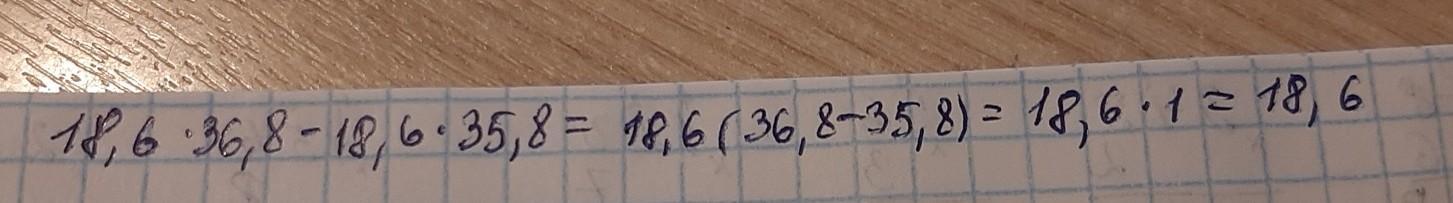 18,6 · 36,8 - 18,6 · 35,8 = 18,6 (36,8-35,8) = 18,6 · 1 = 18,6